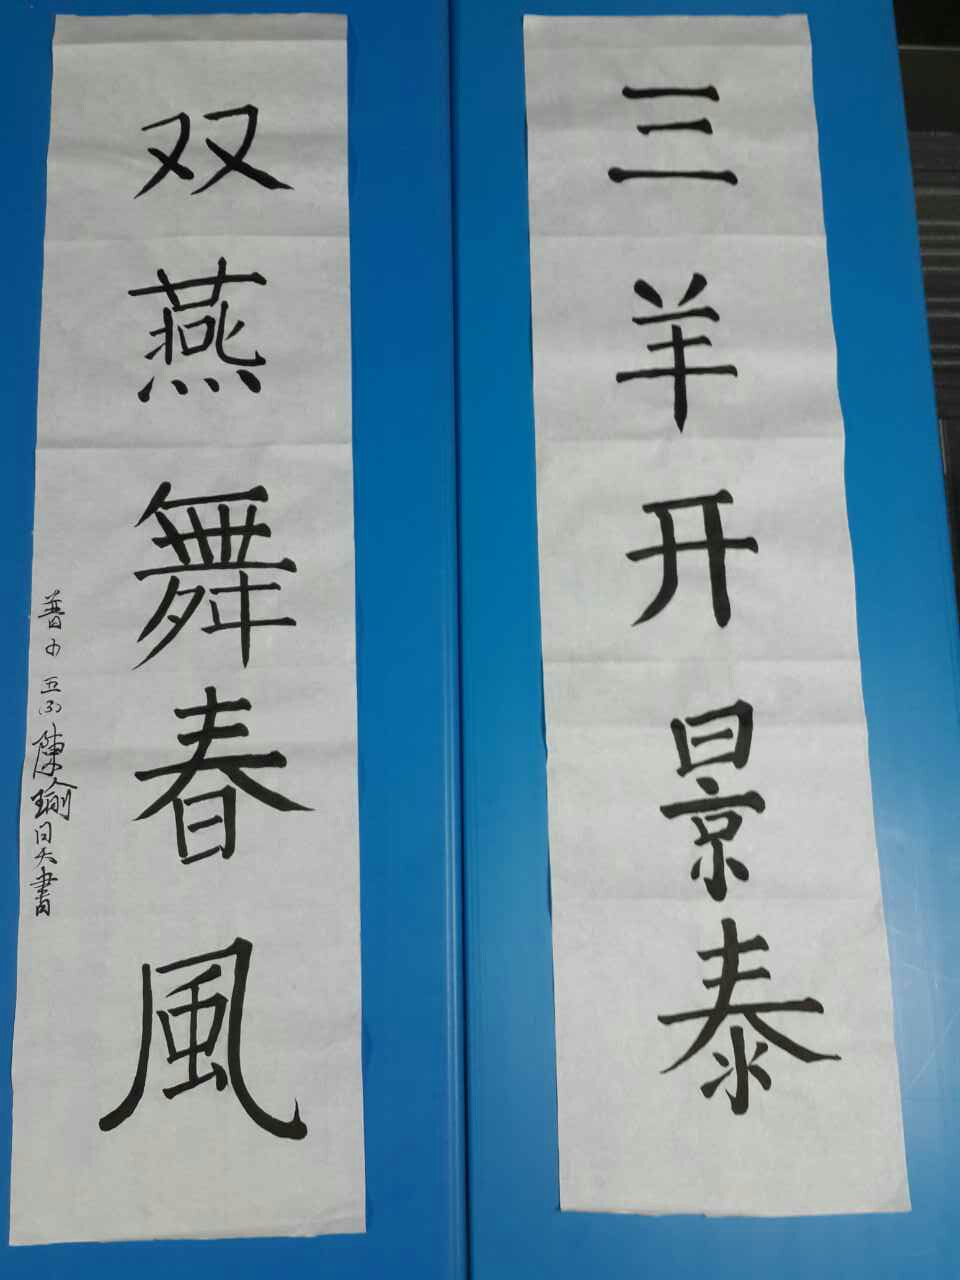 三羊开景泰
双燕舞春風
普小五(3)陳瑜昊書